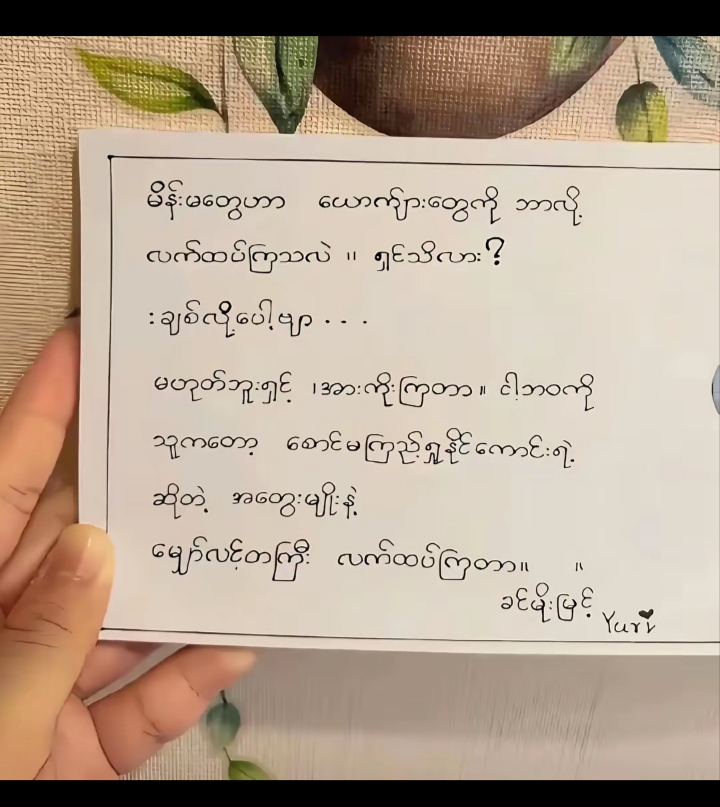 မိန်းမတွေဟာ ယောက်ျားတွေကို ဘာလို့
လက်ထပ်ကြသလဲ ။ ရှင်သိလား?
: ချစ်လို့ပေါ့ဗျာ . . .
မဟုတ်ဘူးရှင့် ၊အားကိုးကြတာ။ ငါ့ဘဝကို
သူကတော့ စောင်မကြည့်ရှုနိုင်ကောင်းရဲ့
ဆိုတဲ့ အတွေးမျိုးနဲ့
မျှော်လင့်တကြီး လက်ထပ်ကြတာ။ ။
ခင်မိုးမြင့်
Yuri